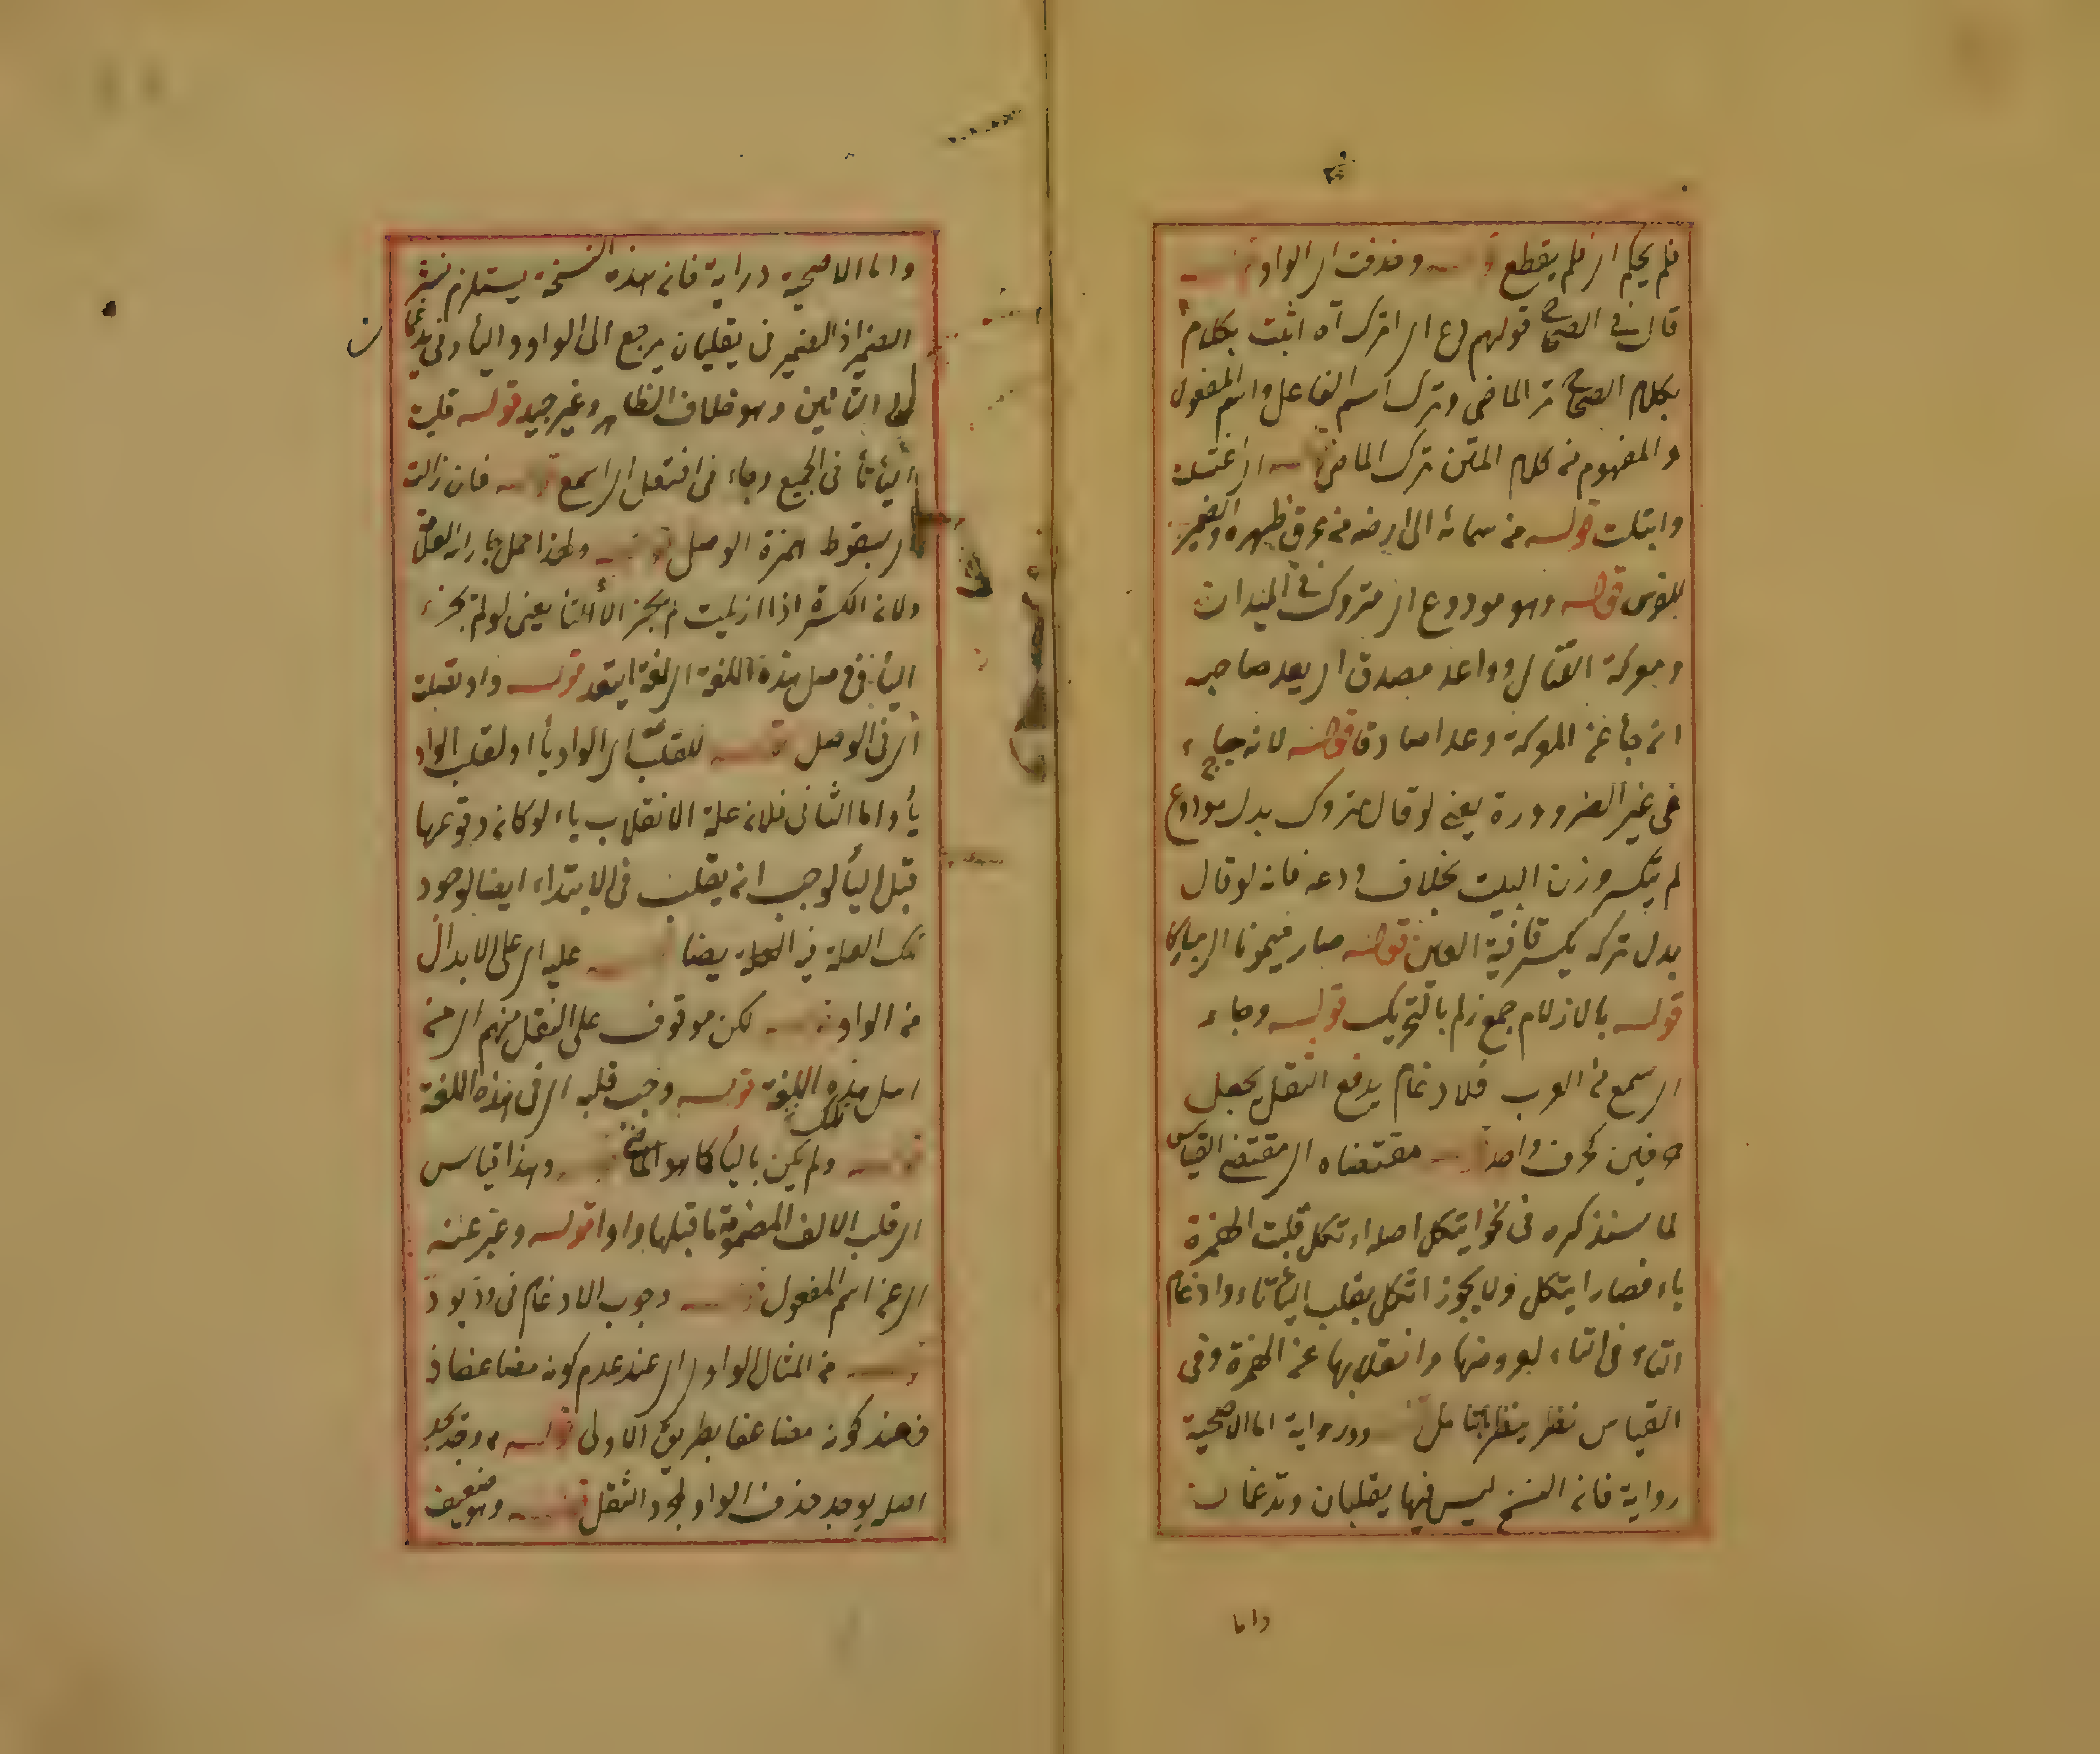 فلم يحكم اى فلم يقطع وحذفت اى الواو
قال فى الصحاح قولهم دع اى اترك اه اثبت بكلام
بكلام الصحاح ترك الماضى وترك اسم الفاعل واسم المفعول
والمفهوم من كلام المتن ترك الماضى اى اغتسلت
وابتلت قوله من سمائه الى ارضه من عرق ظهره والضمير
للفرس قوله وهو مودوع اى متروك فى الميدان
ومعركة القتال وواعد مصدق اى يعد صاحبه
ان جاء عن المعركة وعدا صادقا قوله لانه جاء
فى غير الضرورة يعنى لو قال متروك بدل مودوع
لم ينكسر وزن البيت بخلاف ودعه فانه لو قال
بدل تركه يكسر قافية العين قوله صار ميمونا اى مباركا
قوله بالازلام جمع زلم بالتحريك قوله وجاء
اى سمع من العرب فلا دغام يدفع الثقل بجعل
حرفين كحرف واحد مقتضاه اى مقتضى القياس
لما سنذكره فى نحو ايتكل اصله ائتكل قلبت الهمزة
ياء فصار ايتكل ولا يجوز اتكل بقلب الياء تاء وادغام
التاء فى التاء لعروضها وانقلابها عن الهمزة وفى
القياس نظر ينظر بتأمل ودرواية اما الاصحية
رواية فان النسخ ليس فيها يقلبان وتدغمان
واما
واما الاصحية دراية فان هذه النسخة يستلزم نشر
الضمير اذ الضمير فى يقلبان يرجع الى الواو والياء وفى يدغمان
الى التائين وهو خلاف الظاهر وغير جيد قوله قلبت
الياء تاء فى الجميع وجاء فى افتعل اى اسمع فان زالت
اى بسقوط همزة الوصل ولهذا حمل
ولان الكسرة اذا ازيلت لم يجز الا التاء يعنى لو لم يجز
الياء فى وصل هذه اللغة اى لغة ايتعد قوله واو تقبلت
اى فى الوصل للقلب اى الواو ياء او لقلب الواو
ياء واما الثانى فلان علة الانقلاب ياء لو كان وقوعها
قبل الياء لوجب ان يقلب فى الابتداء ايضا لوجود
تلك العلة فيه عليه اى على الابدال
من الواو لكن موقوف على النقل منهم اى من
اهل هذه اللغة قوله وجب قلبه اى فى هذه اللغة
تلك
ولم يكن بالياء كما هو وهذا قياس
اى قلب الالف المضموم ما قبلها واوا قوله وعبر عنه
اى عن اسم المفعول وجوب الادغام فى ود يود
من المثال الواوى اى عند عدم كونه مضاعفا
فعند كونه مضاعفا بطريق الاولى وقد يجد
اصله يوجد حذف الواو لمجرد الثقل وهو ضعيف